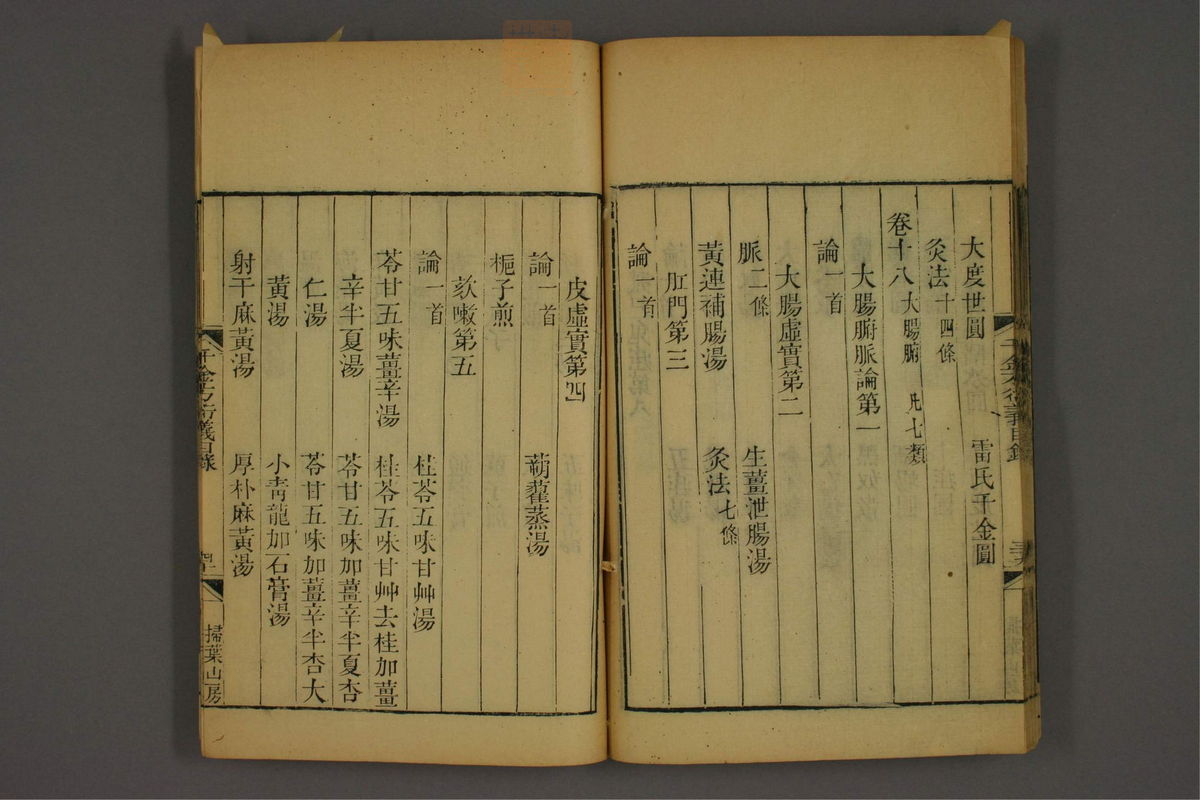 大度世圓　雷氏千金圓
灸法十四條
卷十八大腸腑　凡七類
大腸腑脈論第一
論一首
大腸虛實第二
脈二條　生薑泄腸湯
黃連補腸湯　灸法七條
肛門第三
論一首
皮虛實第四
論一首　蒴藋蒸湯
梔子煎
欬嗽第五
論一首　桂苓五味甘艸湯
苓甘五味薑辛湯　桂苓五味甘艸去桂加薑
辛半夏湯　苓甘五味加薑辛半夏杏
仁湯　苓甘五味加薑辛半杏大
黃湯　小靑龍加石膏湯
射干麻黃湯　厚朴麻黃湯
千金方衍義目錄
掃葉山房